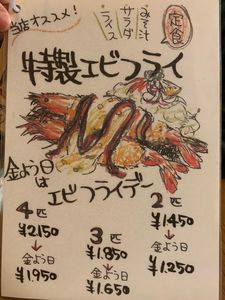 当店オススメ!
定食
みそ汁
サラダ
ライス
特製エビフライ
金よう日
は
エビフライデー
4匹
¥2150
↓
金よう日
¥1950
3匹
¥1.850
↓
金よう日
¥1.650
2匹
¥1450
↓
金よう日
¥1.250